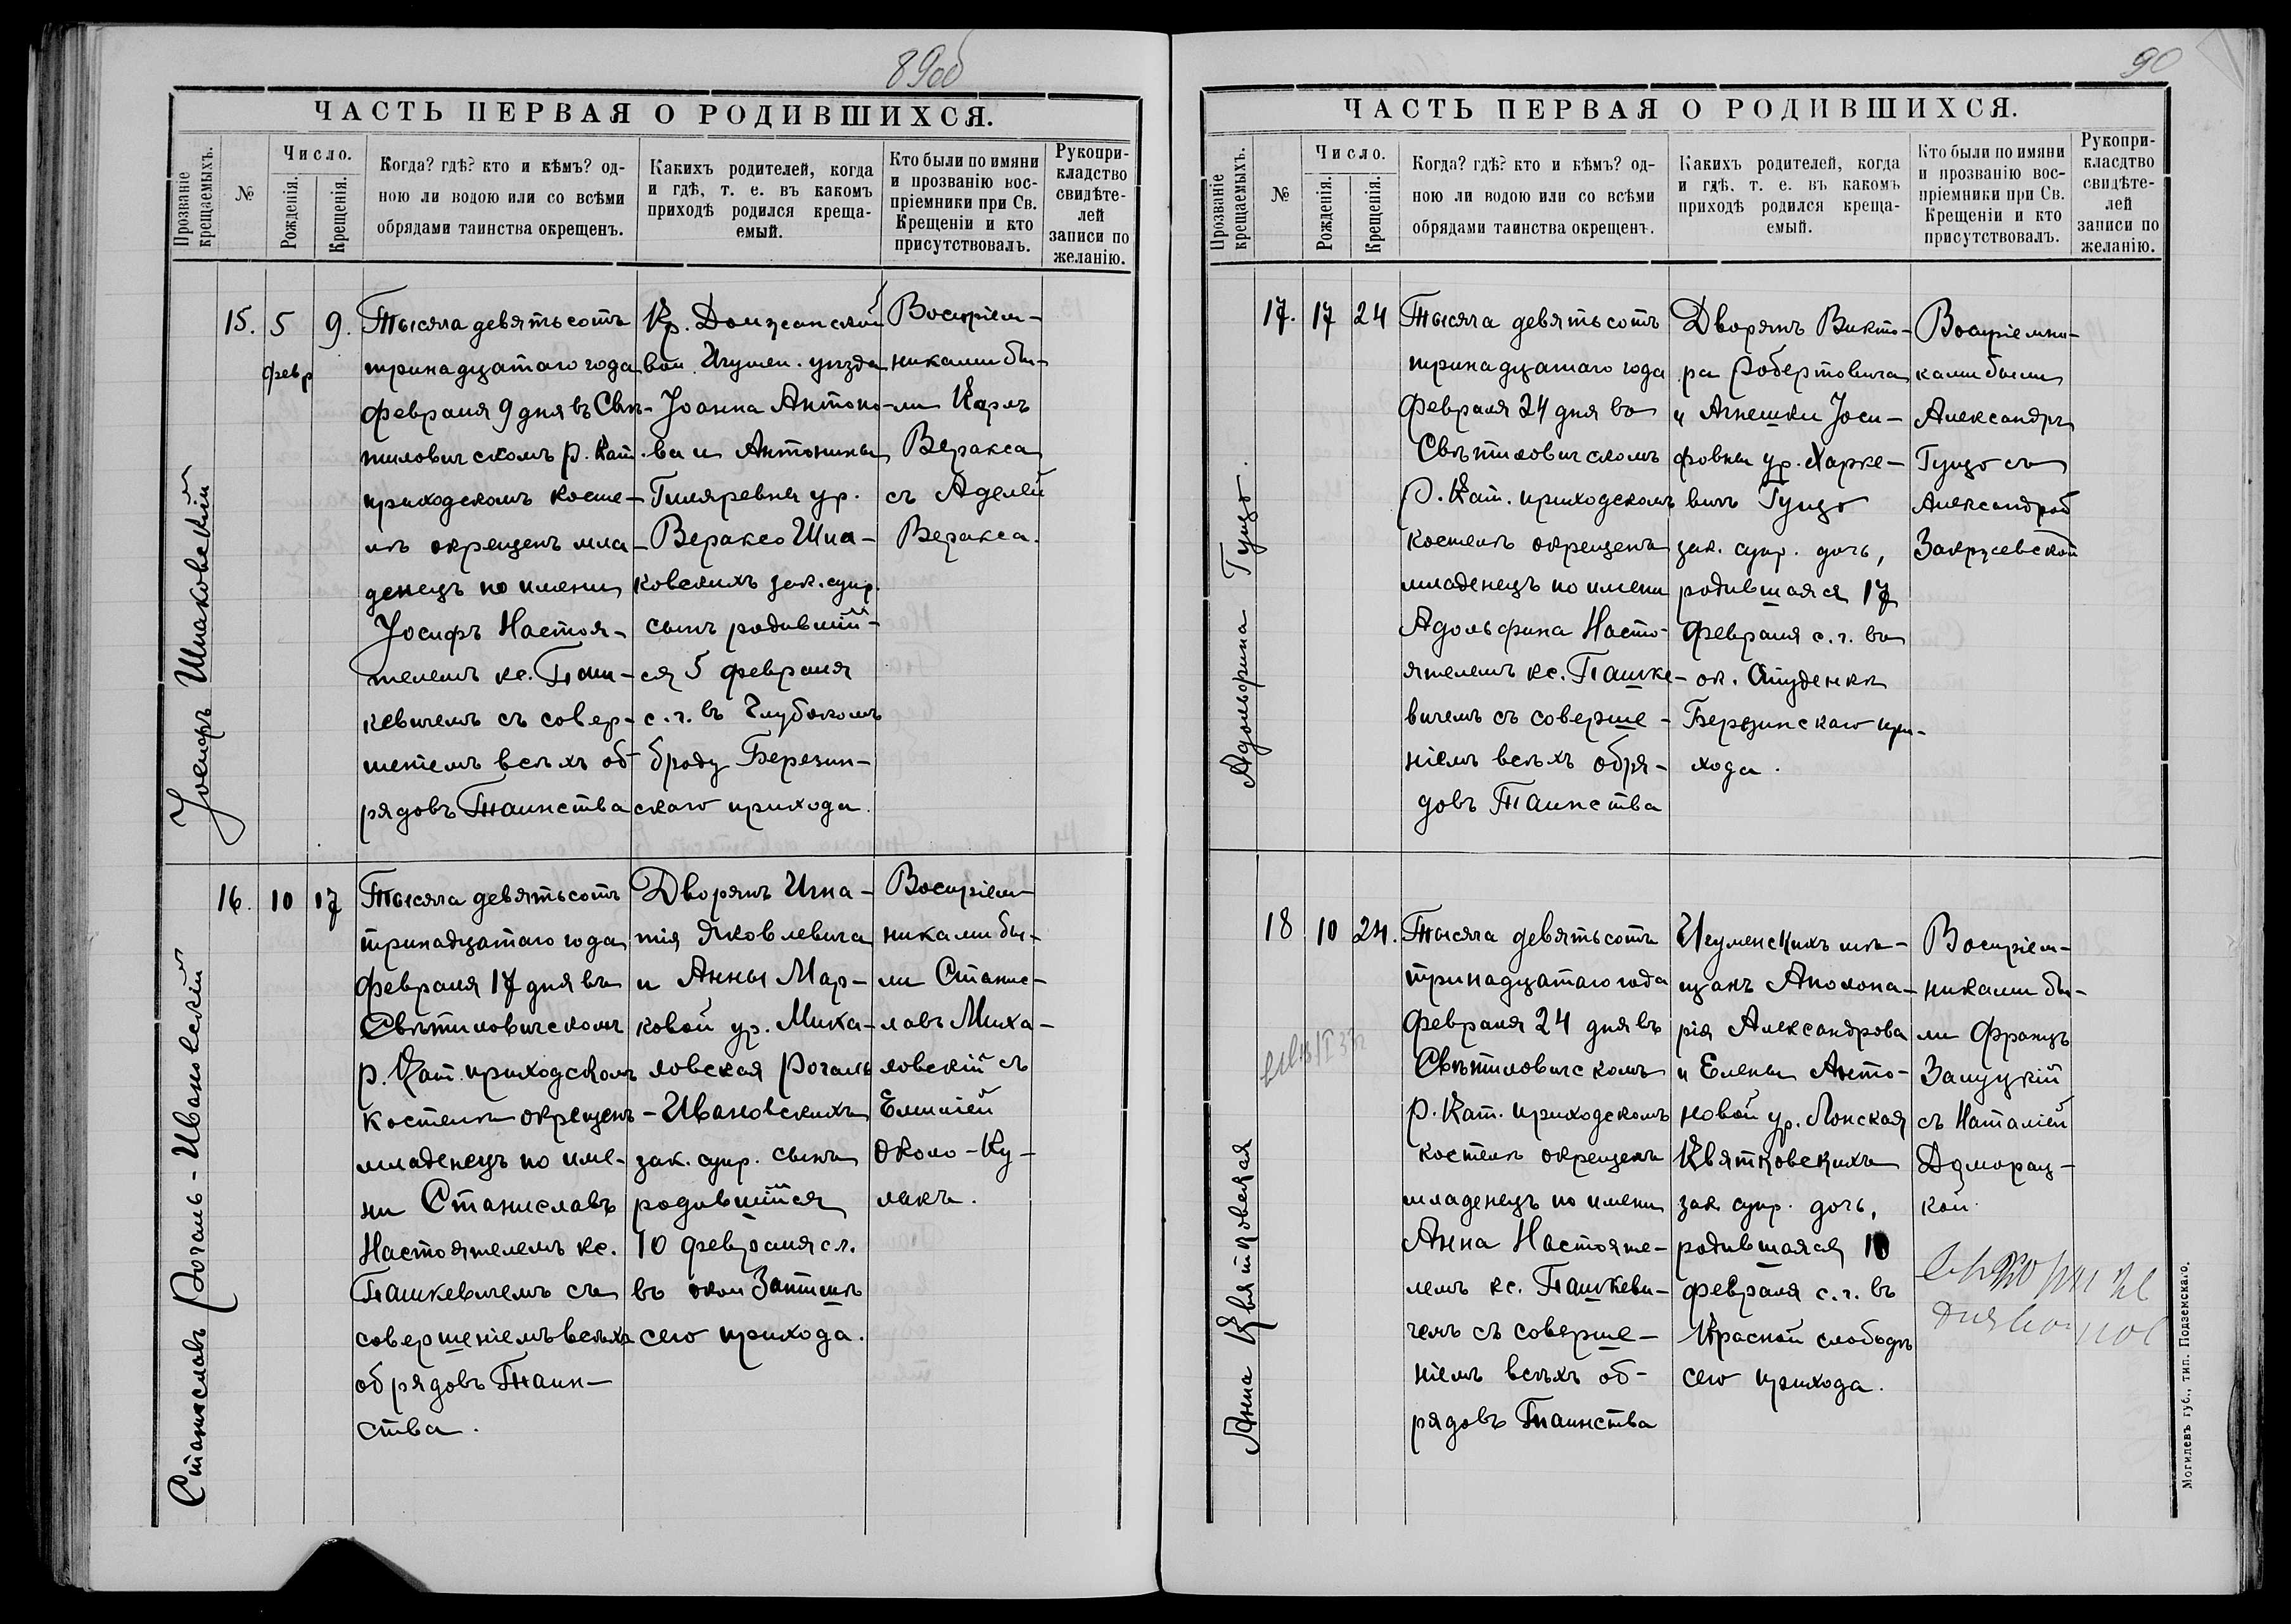 89об
ЧАСТЬ ПЕРВАЯ О РОДИВШИХСЯ.
Прозваніе крещаемыхъ.
№
Число.
Рожденія.
Крещенія.
Когда? гдѣ? кто и кѣмъ? од-
ною ли водою или со всѣми
обрядами таинства окрещенъ.
Какихъ родителей, когда
и гдѣ, т. е. въ какомъ
приходѣ родился креща-
емый.
Кто были по имяни
и прозванію вос-
пріемники при Св.
Крещеніи и кто
присутствовалъ.
Рукопри-
кладство
свидѣте-
лей
записи по
желанію.
Іосифъ Шпаковскій
15.
5
февр
9.
Тысяча девятьсотъ
тринадцатаго года
февраля 9 дня въ Свѣ-
тиловичскомъ р. Кат.
приходскомъ косте-
лѣ окрещенъ мла-
денецъ по имени
Іосифъ Настоя-
телемъ кс. Паш-
кевичемъ съ совер-
шеніемъ всѣхъ об-
рядовъ Таинства
Кр. Должанской
вол. Игумен. уѣзда
Іоанна Антоно-
ва и Антонины
Гиляревны ур.
Веракса Шпа-
ковскихъ зак. супр.
сынъ родившій-
ся 5 февраля
с. г. въ Глубокомъ
броду Березин-
скаго прихода.
Воспріем-
никами бы-
ли Карлъ
Веракса
съ Аделей
Веракса.
Станиславъ Рогаль-Ивановскій
16.
10
17
Тысяча девятьсотъ
тринадцатаго года
февраля 17 дня въ
Свѣтиловичскомъ
р. Кат. приходскомъ
костелѣ окрещенъ
младенецъ по име-
ни Станиславъ
Настоятелемъ кс.
Пашкевичемъ съ
совершеніемъ всѣхъ
обрядовъ Таин-
ства.
Дворянъ Игна-
тія Яковлевича
и Анны Мар-
ковой ур. Миха-
ловская Рогаль
-Ивановскихъ
зак. супр. сынъ
родившійся
10 февраля с. г.
въ окол Затишъ
сего прихода.
Воспріем-
никами бы-
ли Станис-
лавъ Миха-
ловскій съ
Емиліей
Около-Ку-
лакъ.
90
ЧАСТЬ ПЕРВАЯ О РОДИВШИХСЯ.
Прозваніе крещаемыхъ.
№
Число.
Рожденія.
Крещенія.
Когда? гдѣ? кто и кѣмъ? од-
ною ли водою или со всѣми
обрядами таинства окрещенъ.
Какихъ родителей, когда
и гдѣ, т. е. въ какомъ
приходѣ родился креща-
емый.
Кто были по имяни
и прозванію вос-
пріемники при Св.
Крещеніи и кто
присутствовалъ.
Рукопри-
класдтво
свидѣте-
лей
записи по
желанію.
Адольфина Гунго.
17.
17
24
Тысяча девятьсотъ
тринадцатаго года
февраля 24 дня въ
Свѣтиловичскомъ
р. Кат. приходскомъ
костелѣ окрещена
младенецъ по имени
Адольфина Насто-
ятелемъ кс. Пашке-
вичемъ съ соверше-
ніемъ всѣхъ обря-
довъ Таинства
Дворянъ Викто-
ра Робертовича
и Агнешки Іоси-
фовны ур. Харке-
вичъ Гунго
зак. супр. дочь,
родившаяся 17
февраля с. г. въ
ок. Студенка
Березинскаго при-
хода.
Воспріемни-
ками были
Александръ
Гунго съ
Александрой
Закржевской
Анна Квятковская
18
10
24.
Тысяча девятьсотъ
тринадцатаго года
февраля 24 дня въ
Свѣтиловичскомъ
р. Кат. приходскомъ
костелѣ окрещена
младенецъ по имени
Анна Настояте-
лемъ кс. Пашкеви-
чемъ съ соверше-
ніемъ всѣхъ об-
рядовъ Таинства
Игуменскихъ мѣ-
щанъ Аполона-
рія Александрова
и Елены Анто-
новой ур. Лонская
Квятковскихъ
зак. супр. дочь,
родившаяся 10
февраля с. г. въ
Красной слободѣ
сего прихода.
Воспріем-
никами бы-
ли Францъ
Залуцкій
съ Наталіей
Доморац-
кой.
Могилевъ губ., тип. Подземскаго.